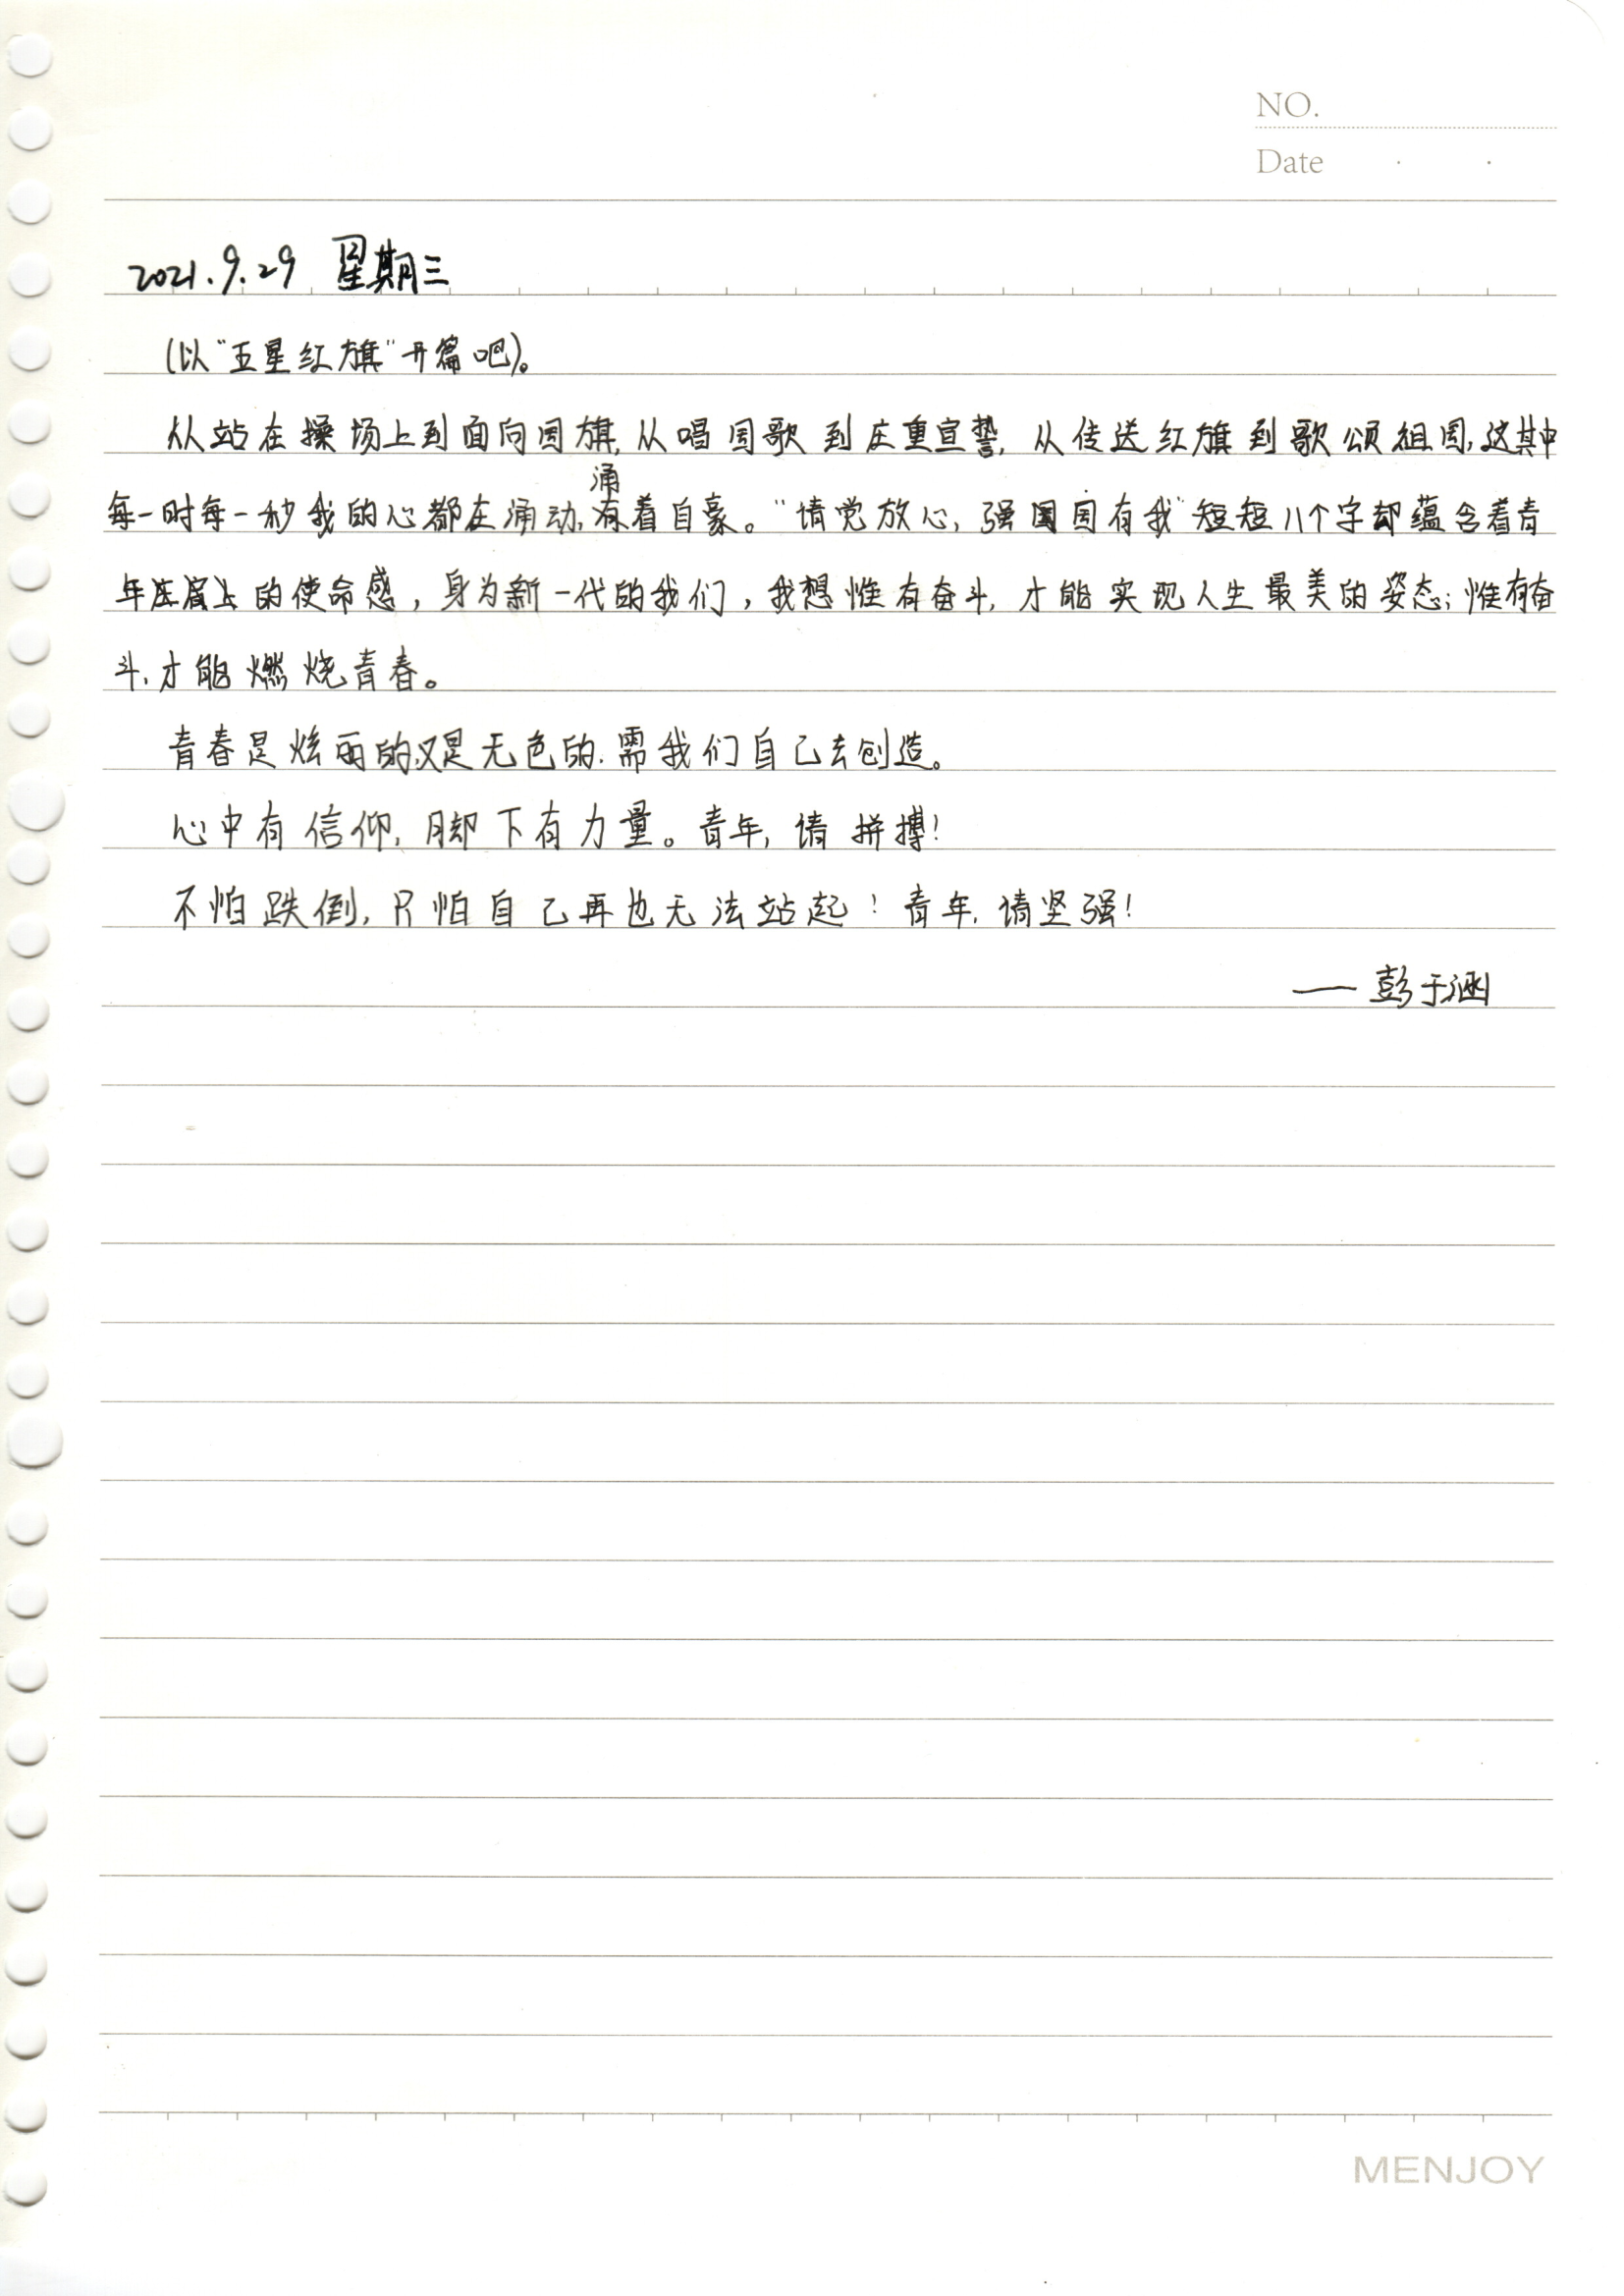 NO.
Date
2021.9.29 星期三
(以"五星红旗"开篇吧)。
从站在操场上到面向国旗,从唱国歌到庄重宣誓,从传送红旗到歌颂祖国,这其中
涌
每一时每一秒我的心都在涌动,有着自豪。"请党放心,强国国有我"短短八个字却蕴含着青
年在肩上的使命感,身为新一代的我们,我想惟有奋斗,才能实现人生最美的姿态;惟有奋
斗,才能燃烧青春。
青春是炫丽的,又是无色的,需我们自己去创造。
心中有信仰,脚下有力量。青年,请拼搏!
不怕跌倒,只怕自己再也无法站起!青年,请坚强!
——彭于涵
MENJOY